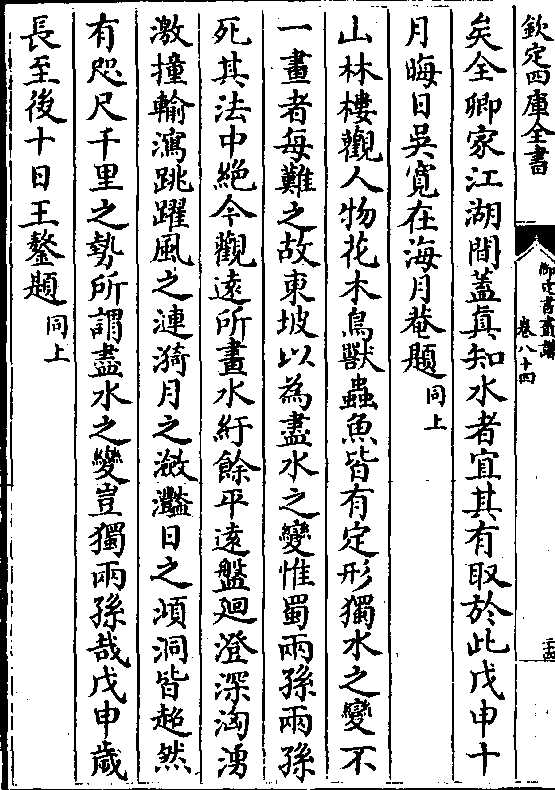 欽定四庫全書
御定書畫譜
卷八十四
矣全卿家江湖間蓋真知水者宜其有取於此戊申十
月晦日吳寛在海月菴題同上
山林樓觀人物花木鳥獸蟲魚皆有定形獨水之變不
一畫者每難之故東坡以為盡水之變惟蜀兩孫兩孫
死其法中絕今觀遠所畫水紆餘平遠盤廻澄深洶湧
激撞輸瀉跳躍風之漣漪月之瀲灩日之澒洞皆超然
有咫尺千里之勢所謂盡水之變豈獨兩孫哉戊申歲
長至後十日王鏊題同上